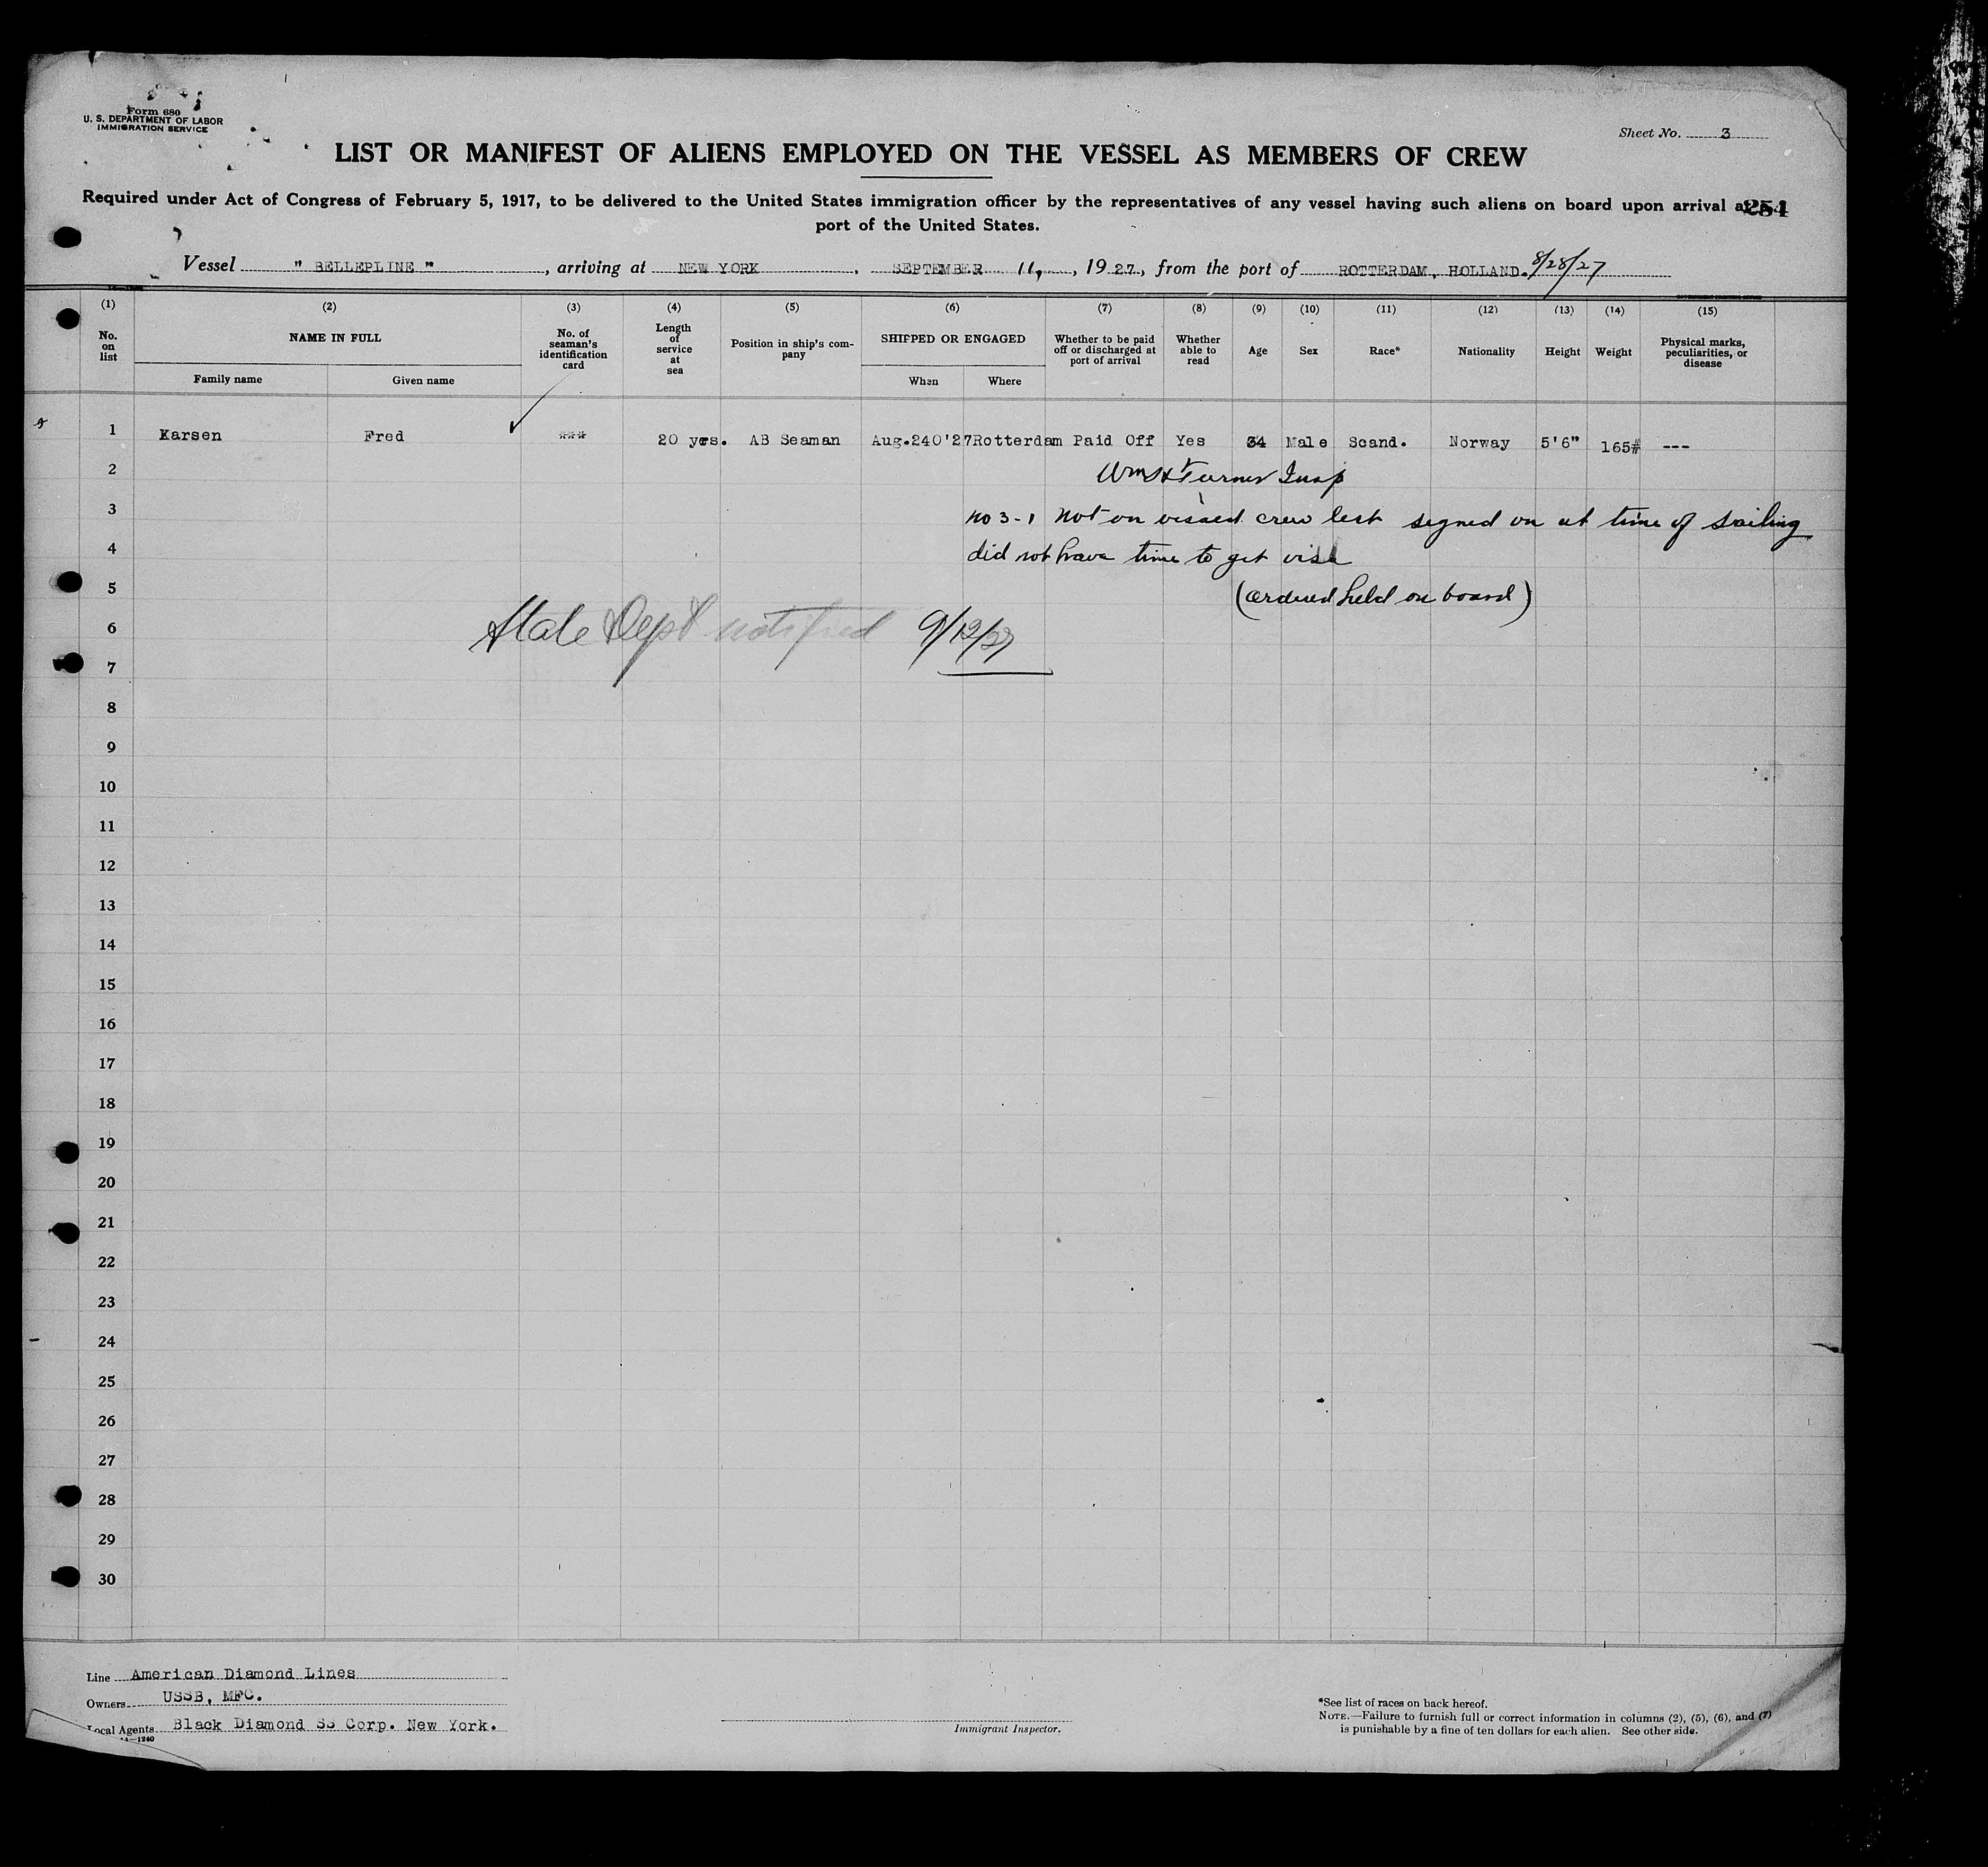 Form 680
U. S. DEPARTMENT OF LABOR
IMMIGRATION SERVICE
Sheet No. 3
LIST OR MANIFEST OF ALIENS EMPLOYED ON THE VESSEL AS MEMBERS OF CREW
Required under Act of Congress of February 5, 1917, to be delivered to the United States immigration officer by the representatives of any vessel having such aliens on board upon arrival at a 254
port of the United States.
Vessel " BELLEPLINE ", arriving at NEW YORK, SEPTEMBER 11, 1927, from the port of ROTTERDAM, HOLLAND. 8/28/27
(1) (2) (3) (4) (5) (6) (7) (8) (9) (10) (11) (12) (13) (14) (15)
No. on list
NAME IN FULL
Family name Given name
No. of seaman's identification card
Length of service at sea
Position in ship's company
SHIPPED OR ENGAGED
When Where
Whether to be paid off or discharged at port of arrival
Whether able to read
Age
Sex
Race*
Nationality
Height
Weight
Physical marks, peculiarities, or disease
1 Karsen Fred *** 20 yrs. AB Seaman Aug.240'27 Rotterdam Paid Off Yes 34 Male Scand. Norway 5'6" 165# ---
2 Wm H Turner Insp
3 no 3-1 not on visaed crew list signed on at time of sailing
4 did not have time to get visa
5 (ordered held on board)
6 State Dept notified 9/12/27
7
8
9
10
11
12
13
14
15
16
17
18
19
20
21
22
23
24
25
26
27
28
29
30
Line American Diamond Lines
Owners USSB, MFC.
Local Agents Black Diamond SS Corp. New York.
—1240
Immigrant Inspector.
*See list of races on back hereof.
NOTE.—Failure to furnish full or correct information in columns (2), (5), (6), and (7)
is punishable by a fine of ten dollars for each alien. See other side.